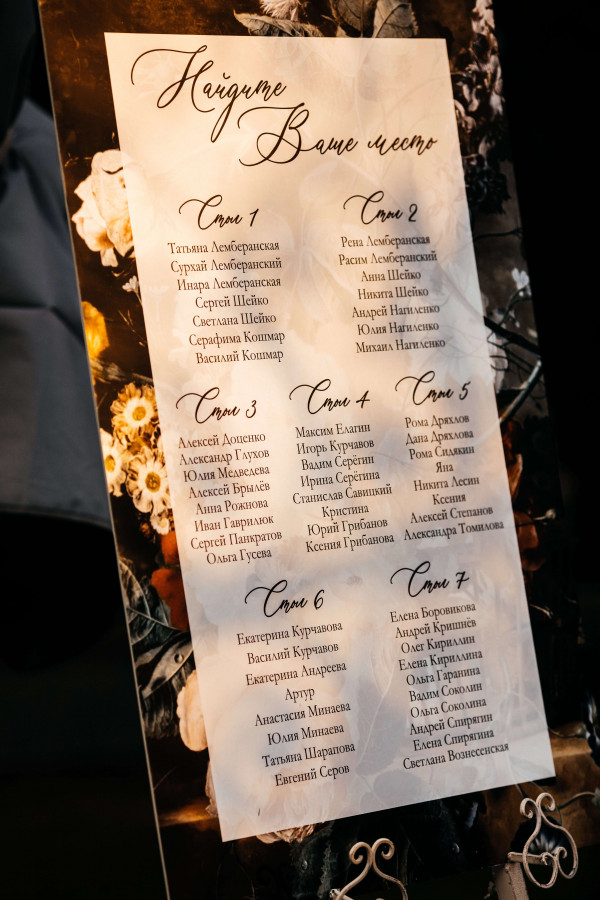 Найдите
Ваше место
Стол 1
Татьяна Лемберанская
Сурхай Лемберанский
Инара Лемберанская
Сергей Шейко
Светлана Шейко
Серафима Кошмар
Василий Кошмар
Стол 2
Рена Лемберанская
Расим Лемберанский
Анна Шейко
Никита Шейко
Андрей Нагиленко
Юлия Нагиленко
Михаил Нагиленко
Стол 3
Алексей Доценко
Александр Глухов
Юлия Медведева
Алексей Брылёв
Анна Рожнова
Иван Гаврилюк
Сергей Панкратов
Ольга Гусева
Стол 4
Максим Елагин
Игорь Курчавов
Вадим Серёгин
Ирина Серёгина
Станислав Савицкий
Кристина
Юрий Грибанов
Ксения Грибанова
Стол 5
Рома Дряхлов
Дана Дряхлова
Рома Сидякин
Яна
Никита Лесин
Ксения
Алексей Степанов
Александра Томилова
Стол 6
Екатерина Курчавова
Василий Курчавов
Екатерина Андреева
Артур
Анастасия Минаева
Юлия Минаева
Татьяна Шарапова
Евгений Серов
Стол 7
Елена Боровикова
Андрей Кришнёв
Олег Кириллин
Елена Кириллина
Ольга Гаранина
Вадим Соколин
Ольга Соколина
Андрей Спирягин
Елена Спирягина
Светлана Вознесенская